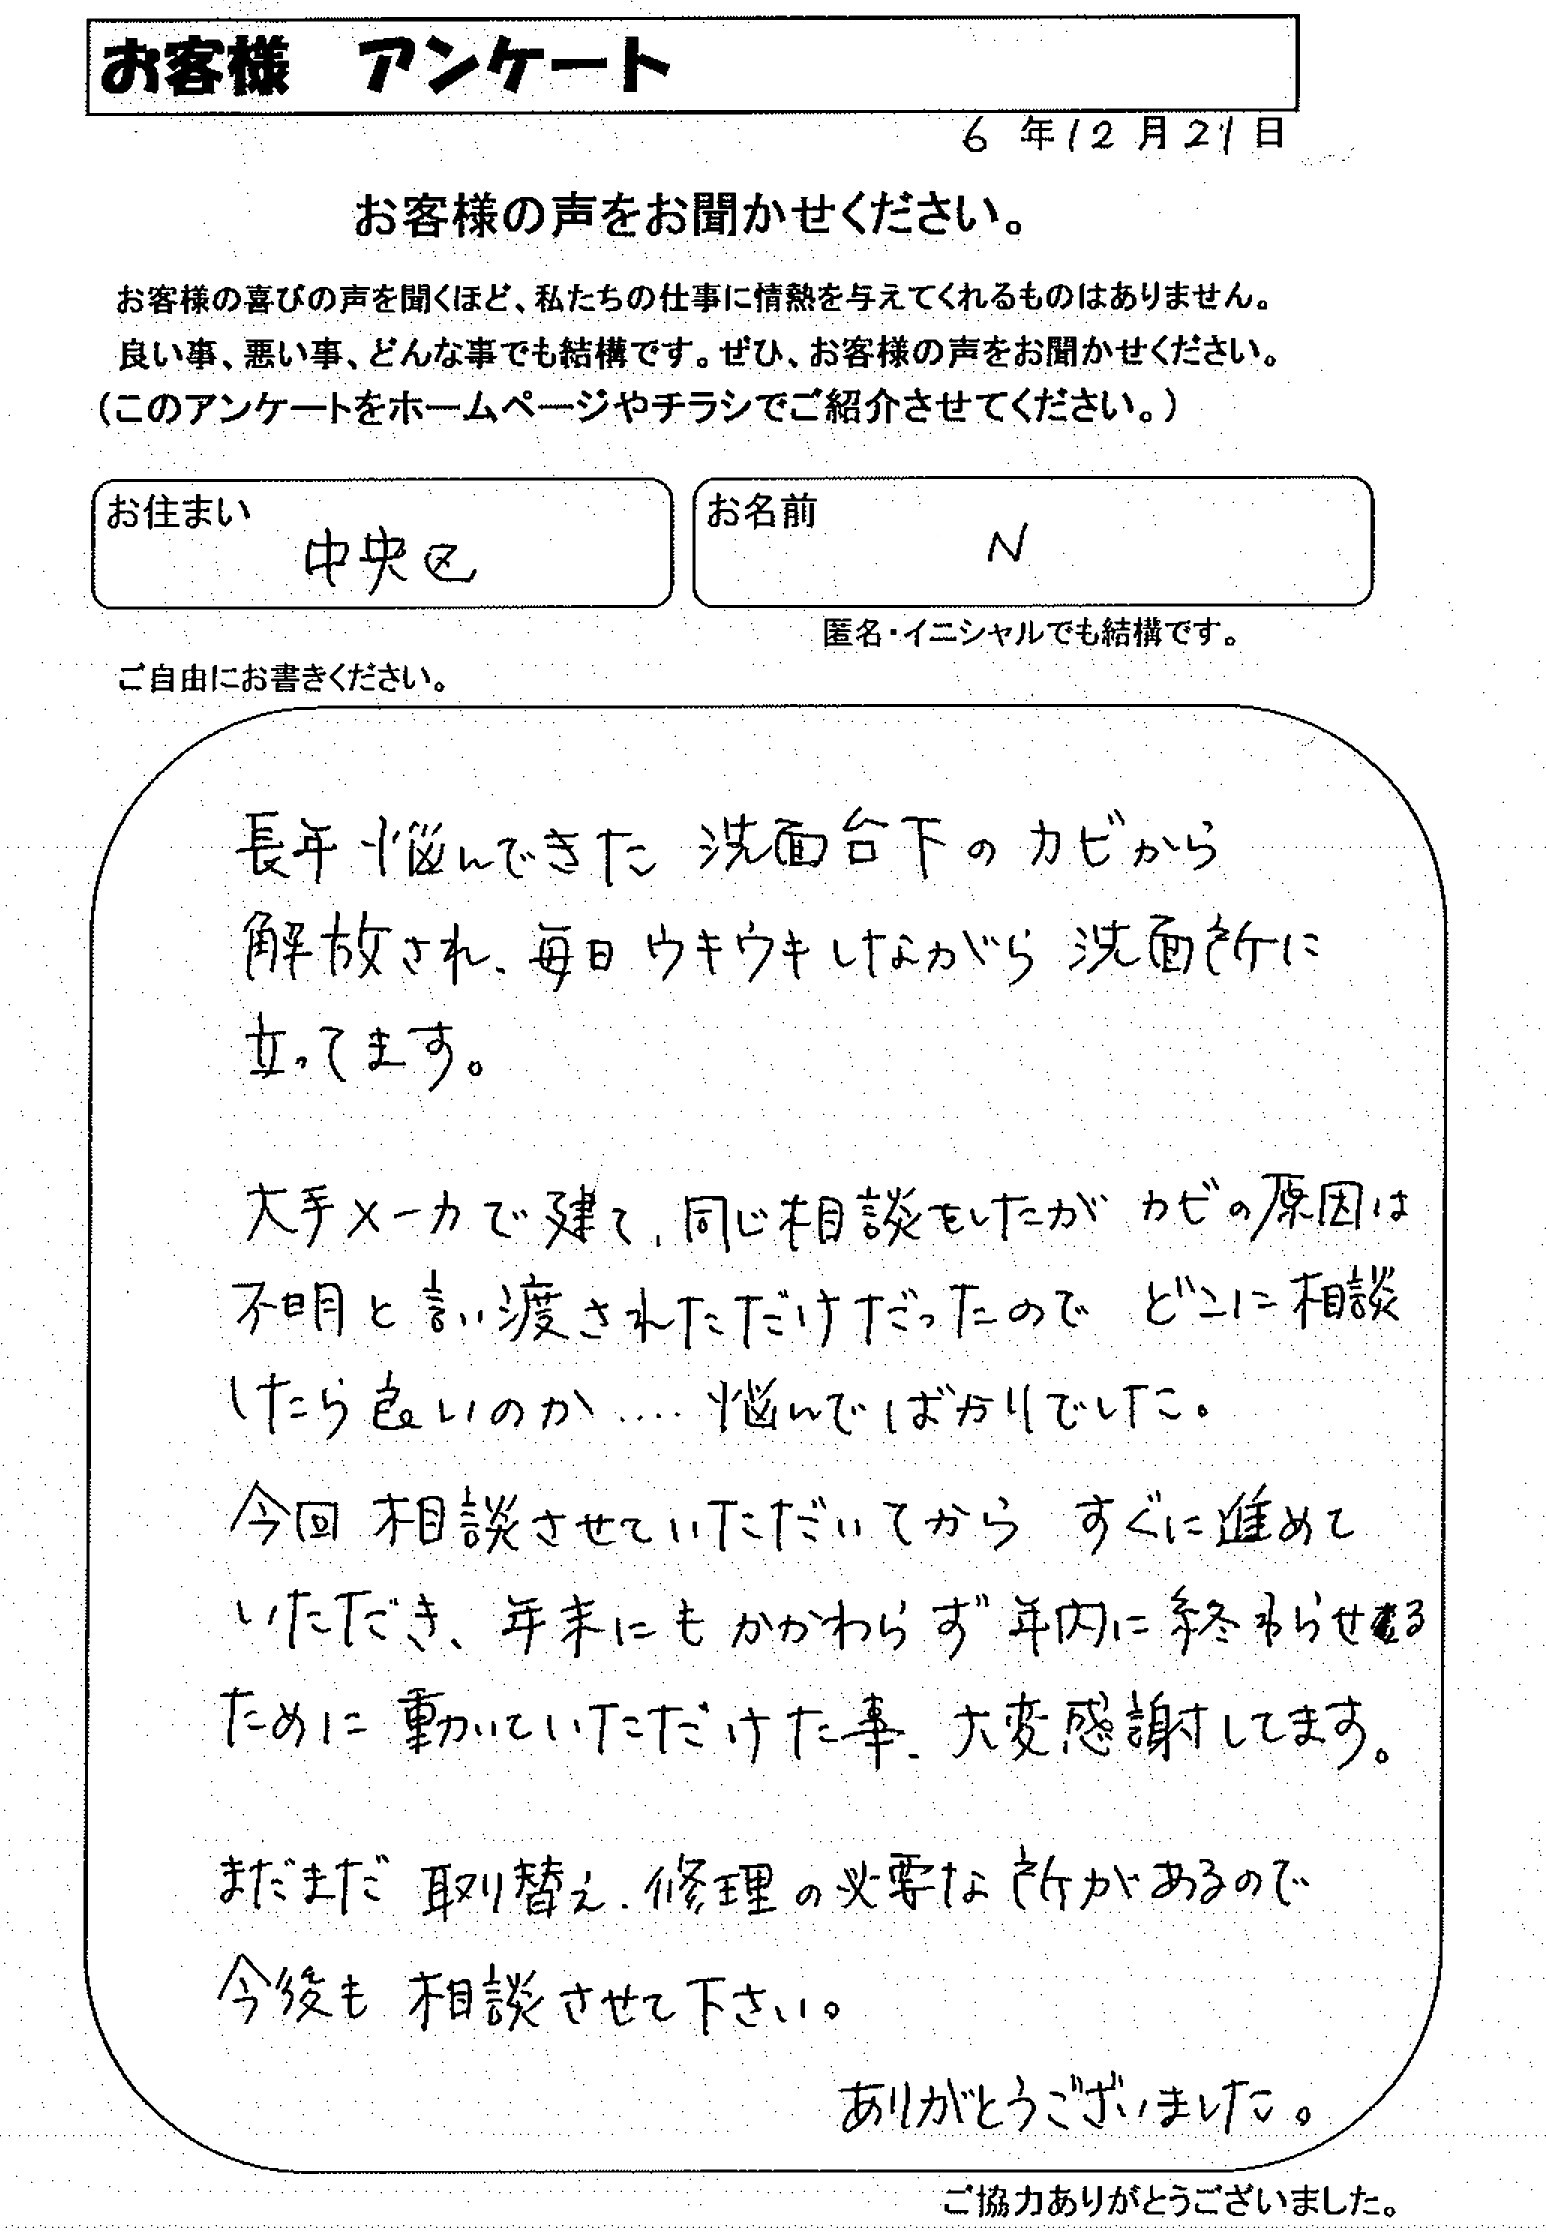 お客様　アンケート
6 年 12 月 21 日
お客様の声をお聞かせください。
お客様の喜びの声を聞くほど、私たちの仕事に情熱を与えてくれるものはありません。
良い事、悪い事、どんな事でも結構です。ぜひ、お客様の声をお聞かせください。
（このアンケートをホームページやチラシでご紹介させてください。）
お住まい 中央区
お名前 N
匿名・イニシャルでも結構です。
ご自由にお書きください。
長年悩んできた 洗面台下のカビから
解放され、毎日ウキウキしながら 洗面所に
立ってます。
大手メーカで建て、同じ相談をしたが カビの原因は
不明と言い渡されただけだったので どこに相談
したら良いのか‥‥悩んでばかりでした。
今回 相談させていただいてから すぐに進めて
いただき、年末にもかかわらず 年内に終わらせる
ために動いていただけた事、大変感謝してます。
まだまだ 取り替え、修理の必要な所があるので
今後も 相談させて下さい。
ありがとうございました。
ご協力ありがとうございました。